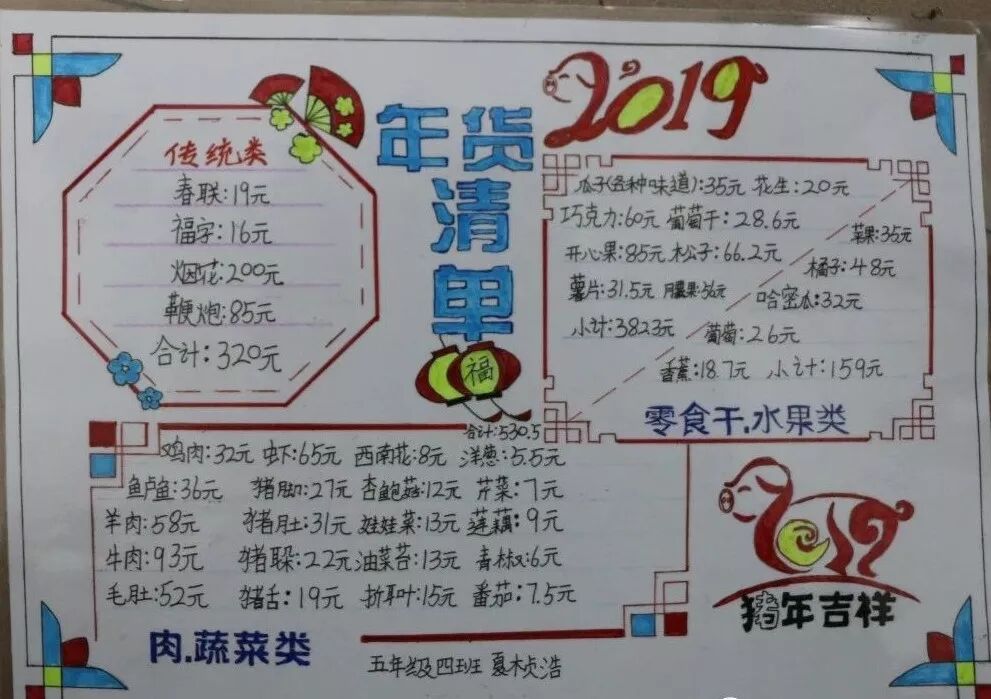 年货清单
2019
传统类
春联:19元
福字:16元
烟花:200元
鞭炮:85元
合计:320元
福
瓜子(各种味道):35元 花生:20元
巧克力:60元 葡萄干:28.6元
开心果:85元 松子:66.2元
薯片:31.5元
小计:382.3元
苹果:35元
橘子:48元
哈密瓜:32元
葡萄:26元
香蕉:18.7元
小计:159元
零食干.水果类
合计:530.5
鸡肉:32元 虾:65元 西南花:8元 洋葱:5.5元
鱼卢鱼:36元 猪脚:27元 杏鲍菇:12元 芹菜:7元
羊肉:58元 猪肚:31元 娃娃菜:13元 莲藕:9元
牛肉:93元 猪腺:22元 油菜苔:13元 青椒:6元
毛肚:52元 猪舌:19元 折耳叶:15元 番茄:7.5元
肉.蔬菜类
猪年吉祥
五年级四班 夏桢浩